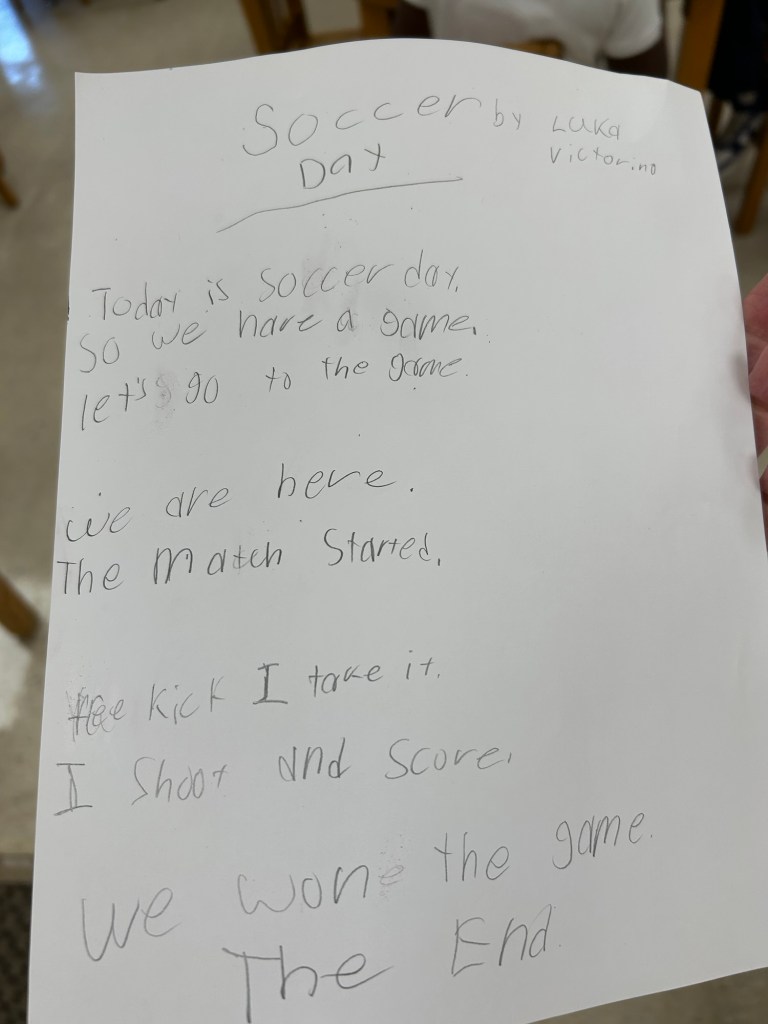 Soccer by Luka
Day Victorino
Today is soccer day.
So we have a game.
let's go to the game.
we are here.
The match Started.
free kick I take it.
I Shoot and Score.
we won the game.
The End